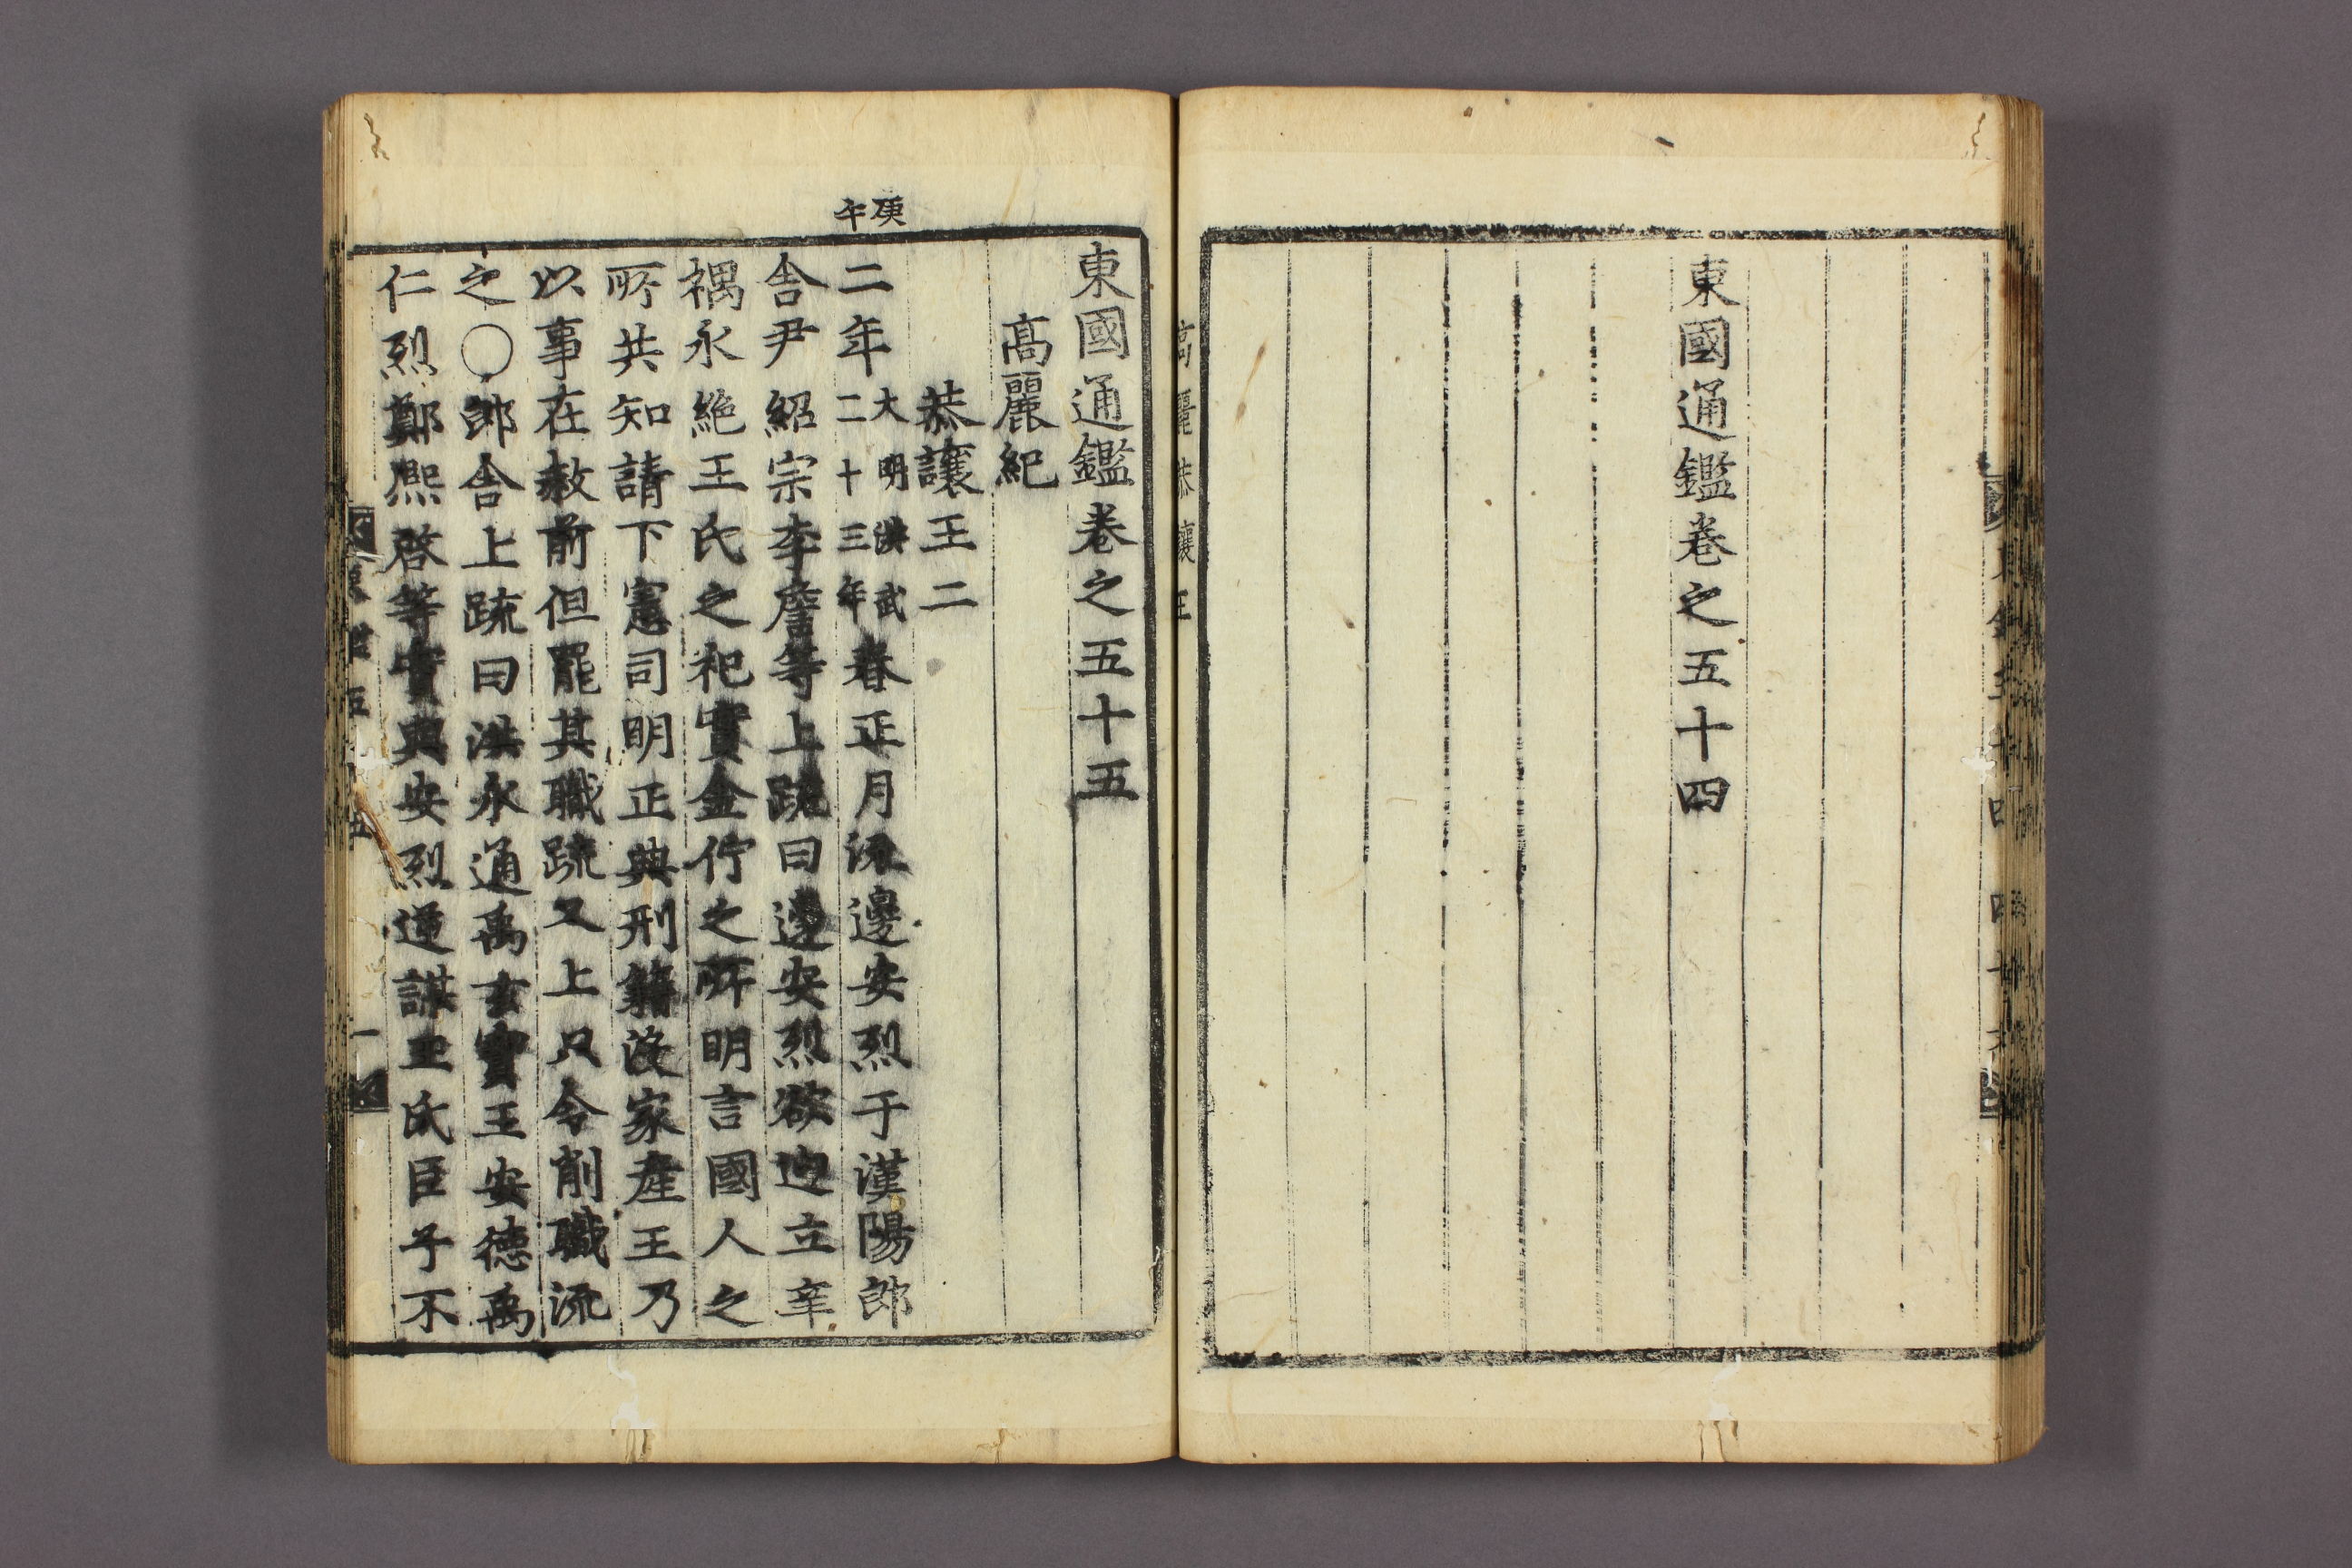 東國通鑑卷之五十四
高麗恭讓王
東國通鑑卷之五十五
高麗紀
恭讓王二
庚午
二年大明洪武二十三年春正月流邊安烈于漢陽郎
舍尹紹宗李詹等上疏曰邊安烈欲迎立辛
禑永絶王氏之祀實金佇之所明言國人之
所共知請下憲司明正典刑籍沒家產王乃
以事在赦前但罷其職疏又上只令削職流
之○郎舍上疏曰洪永通禹玄寶王安德禹
仁烈鄭熙啓等實與安烈連謀王氏臣子不